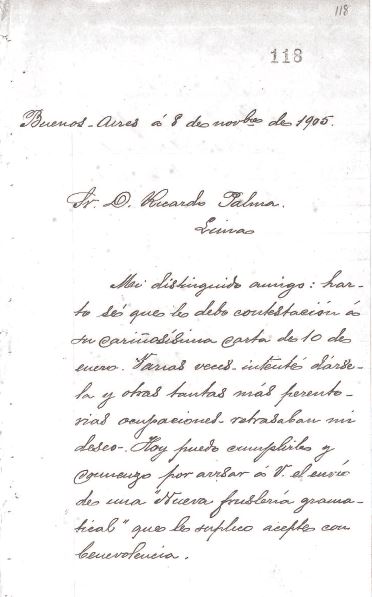 118
118
Buenos-Aires á 8 de novbre de 1905.
Sr. D. Ricardo Palma.
Lima
Mi distinguido amigo: har-
to sé que le debo contestación á
su cariñosísima carta de 10 de
enero. Varias veces intenté dárse-
la y otras tantas más perento-
rias ocupaciones retrasaban mi
deseo. Hoy puedo cumplirlo y
comienzo por avisar á V. el envío
de una "Nueva fruslería grama-
tical" que le suplico acepte con
benevolencia.